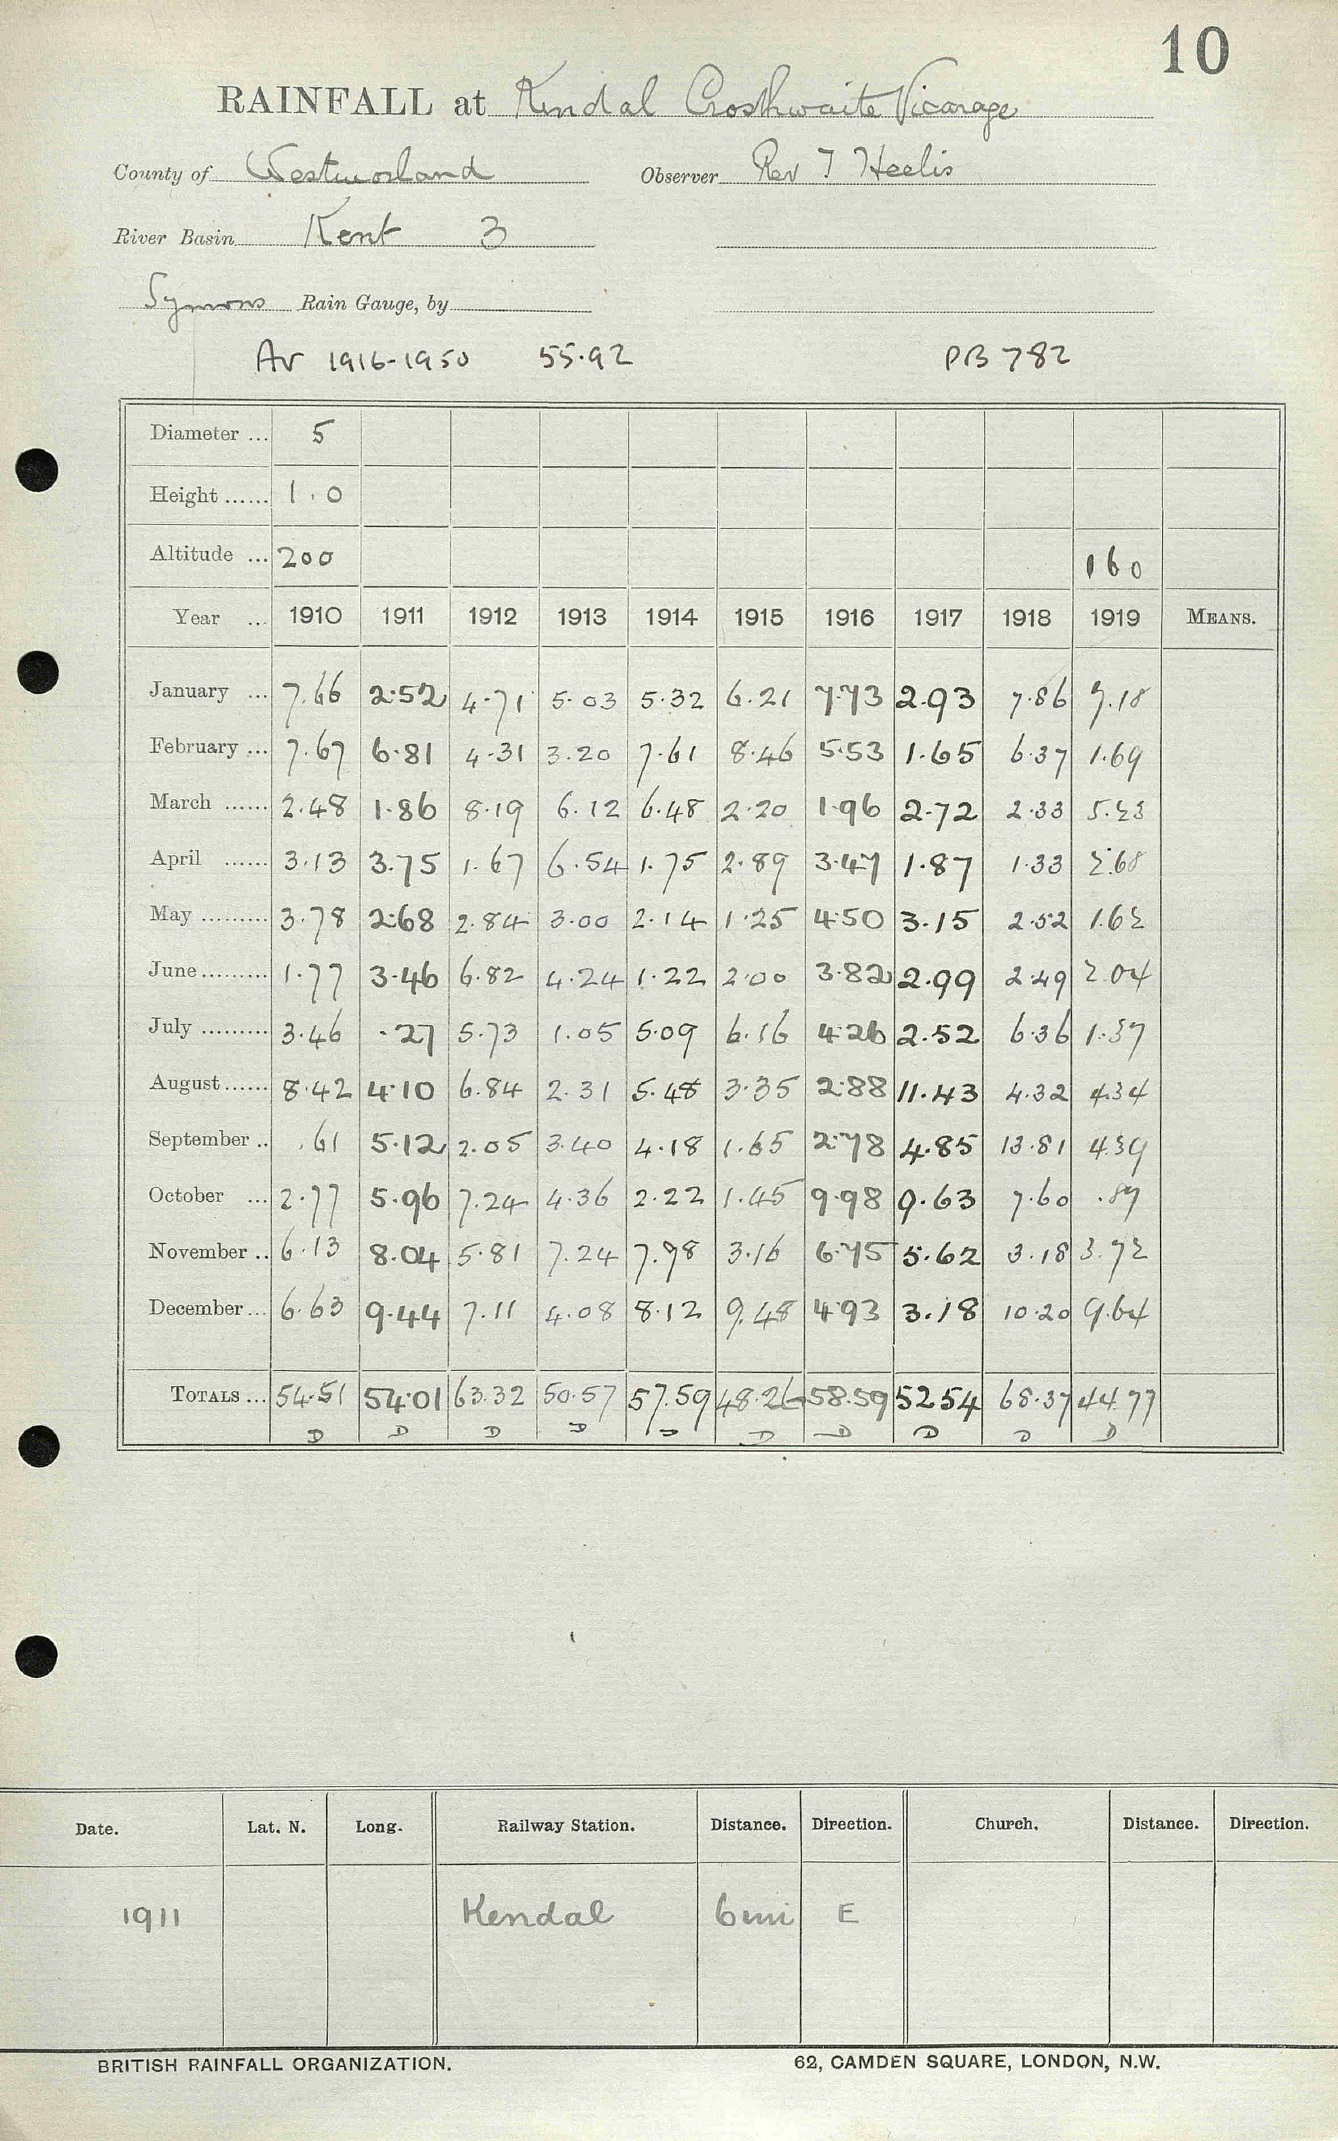 10
RAINFALL at Kendal Crosthwaite Vicarage
County of Westmorland Observer Rev T Heelis
River Basin Kent 3
Symons Rain Gauge, by
Av 1916-1950 55.92 PB 782
Diameter ... 5
Height ...... 1.0
Altitude ... 200 160
Year ... 1910 1911 1912 1913 1914 1915 1916 1917 1918 1919 MEANS.
January ... 7.66 2.52 4.71 5.03 5.32 6.21 7.73 2.93 7.86 7.18
February ... 7.67 6.81 4.31 3.20 7.61 8.46 5.53 1.65 6.37 1.69
March ...... 2.48 1.86 8.19 6.12 6.48 2.20 1.96 2.72 2.33 5.23
April ...... 3.13 3.75 1.67 6.54 1.75 2.89 3.47 1.87 1.33 2.68
May ......... 3.78 2.68 2.84 3.00 2.14 1.25 4.50 3.15 2.52 1.62
June ......... 1.77 3.46 6.82 4.24 1.22 2.00 3.82 2.99 2.49 2.04
July ......... 3.46 .27 5.73 1.05 5.09 6.16 4.26 2.52 6.36 1.37
August ...... 8.42 4.10 6.84 2.31 5.48 3.35 2.88 11.43 4.32 4.34
September .. .61 5.12 2.05 3.40 4.18 1.65 2.78 4.85 13.81 4.39
October ... 2.77 5.96 7.24 4.36 2.22 1.45 9.98 9.63 7.60 .87
November .. 6.13 8.04 5.81 7.24 7.98 3.16 6.75 5.62 3.18 3.72
December ... 6.63 9.44 7.11 4.08 8.12 9.48 4.93 3.18 10.20 9.64
TOTALS ... 54.51 54.01 63.32 50.57 57.59 48.26 58.59 52.54 68.37 44.77
D D D D D D D D D D
Date. Lat. N. Long. Railway Station. Distance. Direction. Church. Distance. Direction.
1911 Kendal 6 mi E
BRITISH RAINFALL ORGANIZATION. 62, CAMDEN SQUARE, LONDON, N.W.